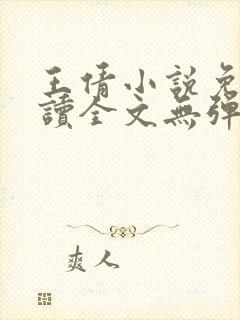 王倩小說免
讀全文無彈
爽人